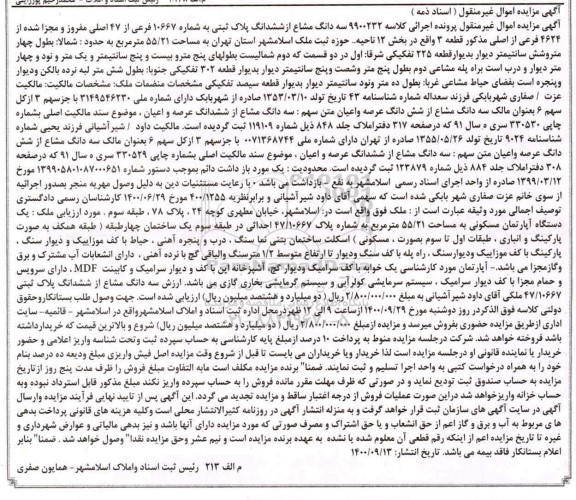 آگهی مزایده اموال غیرمنقول ( اسناد ذمه )
آگهی مزایده اموال غیرمنقول پرونده اجرائی کلاسه ۹۹۰۰۲۳۲ سه دانگ مشاع ازششدانگ پلاک ثبتی به شماره ۱۰۶۶۷ فرعی از ۴۷ اصلی مفروز و مجزا شده از
۴۶۲۴ فرعی از اصلی مذکور قطعه ۳ واقع در بخش ۱۲ ناحیه.. حوزه ثبت ملک اسلامشهر استان تهران به مساحت ۵۵/۲۱ مترمربع به حدود : شمالا: بطول چهار
متروشش سانتیمتر دیوار بدیوارقطعه ۲۲۵ تفکیکی شرقا: اول در دو قسمت که دوم شمالیست بطولهای پنج مترو بیست و پنج سانتیمتر و یک متر و نود و چهار
متر دیوار و درب است براه پله مشاعی دوم بطول پنج متر وشصت وپنج سانتیمتر دیوار بدیوار قطعه ۳۰۲ تفکیکی جنوبا: بطول شش متر لبه نرده بالکن ودیوار
وپنجره است بفضای حیاط مشاعی غربا: بطول ده متر ونود سانتیمتر دیوار بدیوار قطعه سیصد تفکیکی مشخصات منضمات ملک: مشخصات مالکیت: مالکیت
عزت / صفاری شهربابکی فرزند سعداله شماره شناسنامه ۴۳ تاریخ تولد ۱۳۵۳/۰۳/۱۰ صادره از شهربابک دارای شماره ملی ۳۱۴۹۵۴۶۲۳۰ با جزسهم ۳ ازکل
سهم ۶ بعنوان مالک سه دانگ مشاع از شش دانگ عرصه واعیان متن سهم : سه دانگ مشاع از ششدانگ عرصه و اعیان ، موضوع سند مالکیت اصلی بشماره
چاپی ۳۳۰۵۳۰ سری ه سال ۹۱ که درصفحه ۳۱۷ دفتراملاک جلد ۸۴۸ ذیل شماره ۱۱۹۱۰۹ ثبت گردیده است. مالکیت داود / شیرآشیانی فرزند یحیی شماره
شناسنامه ۹۰۲۴ تاریخ تولد ۱۳۵۵/۰۵/۲۶ صادره از تهران دارای شماره ملی ۰۰۷۱۳۶۸۷۴۴ با جزسهم ۳ ازکل سهم ۶ بعنوان مالک سه دانگ مشاع از شش
دانگ عرصه واعیان متن سهم : سه دانگ مشاع از ششدانگ عرصه و اعیان ، موضوع سند مالکیت اصلی بشماره چاپی ۳۳۰۵۲۹ سری ه سال ۹۱ که درصفحه
۳۰۸ دفتراملاک جلد ۸۸۴ ذیل شماره ۱۲۳۸۷۹ ثبت گردیده است. محدودیت : یک مورد باز داشت دائم بموجب دستور شماره ۱۳۹۹۰۵۸۰۱۰۸۷۰۰۰۶۵۱ مورخ
۱۳۹۹/۰۳/۱۲ صادره از واحد اجرای اسناد رسمی اسلامشهر بنفع ... بازداشت می باشد - با رعایت مستثنیات دین به دلیل وصول مهریه منجر بصدور اجرائیه
از سوی خانم عزت صفاری شهر بابکی شده است که سهمی آقای داود شیر آشیانی و برابرنظریه ۴۰۰۱۲۵۵ مورخ ۱۴۰۰/۰۶/۲۹ کارشناس رسمی دادگستری
توصیف اجمالی مورد وثیقه عبارت است از : ملک فوق واقع است در: اسلامشهر، خیابان مطهری کوچه ۲۴ ، پلاک ۷۸ ، طبقه سوم . مورد ارزیابی ملک : یک
دستگاه آپارتمان مسکونی به مساحت ۵۵/۲۱ مترمربع و شماره پلاک ۴۷/۱۰۶۶۷ احداثی در طبقه سوم یک ساختمان چهارطبقه ( طبقه همکف به صورت
پارکینگ و انباری ، طبقات اول تا سوم بصورت ، مسکونی ) اسکلت ساختمان بتنی نما سنگ ، درب و پنجره آهنی ، حیاط با کف موزاییک و دیوار سنگ ،
پارکینگ با کف موزاییک ودیوارسنگ ، راه پله با کف سنگ ودیوار تا ارتفاع متوسط ۱/۲ مترسنگ والباقی گچ با نرده آهنی ، دارای انشعابات آب مشترک و برق
وگازمجزا می باشد.- آپارتمان مورد کارشناسی یک خوابه با کف سرامیک ودیوار گچ، آشپزخانه اپن با کف و دیوار سرامیک و کابینت MDF ، دارای سرویس
و حمام مجزا با کف و دیوار سرامیک ، سیستم سرمایش کولرآبی و سیستم گرمایشی بخاری گازی می باشد. ارزش سه دانگ مشاع از ششدانگ پلاک ثبتی
۴۷/۱۰۶۶۷ ملکی آقای داود شیر آشیانی به مبلغ ۲/۸۰۰/۰۰۰/۰۰۰ ریال (دو میلیارد و هشتصد میلیون ریال) ارزیابی شده است. جهت وصول طلب بستانکاروحقوق
دولتی کلاسه فوق الذکردر روز دوشنبه مورخ ۱۴۰۰/۰۹/۲۹ ازساعت ۹ الی ۱۲ ظهردرمحل اداره ثبت اسناد و املاک اسلامشهرواقع در اسلامشهر - قائمیه – سایت
اداری ازطریق مزایده حضوری بفروش میرسد و مزایده ازمبلغ ۲/۸۰۰/۰۰۰/۰۰۰ ریال (دو میلیارد و هشتصد میلیون ریال) شروع و بالاترین قیمت که خریدارداشته
باشد فروخته خواهد شد. شرکت درجلسه مزایده منوط به پرداخت ۱۰ درصد ازمبلغ پایه کارشناسی به حساب سپرده ثبت وتحت شناسه واریز اعلامی و حضور
خریدار یا نماینده قانونی او درجلسه مزایده است لذا خریدار ویا خریداران می بایست تا قبل از شروع وقت مزایده اصل فیش واریزی مبلغ ودیعه ده درصد بنام
خود را به همراه درخواست کتبی به واحد اجرا تسلیم و ثبت نمایند. ضمنا" برنده مزایده مکلف است مابه التفاوت مبلغ فروش را ظرف مدت پنج روز ازتاریخ
مزایده به حساب صندوق ثبت تودیع نماید و در صورتی که ظرف مهلت مقرر مانده فروش را به حساب سپرده واریز نکند مبلغ مذکور قابل استرداد نبوده وبه
حساب خزانه واریزخواهد شد دراین صورت عملیات فروش از درجه اعتبار ساقط و مزایده تجدید می گردد. این آگهی پس از تایید نهایی فرآیند مزایده وارسال
آگهی در سایت آگهی های سازمان ثبت قرار خواهد گرفت و به منزله انتشار آگهی در روزنامه کثیرالانتشار محلی است وکلیه هزینه های قانونی پرداخت بدهی
ها ی مربوط به آب و برق و گاز اعم از حق انشعاب و یا حق اشتراک و مصرف صورتی که مورد مزایده دارای آنها باشد و نیز بدهی مالیاتی و عوارض شهرداری و
غیره تا تاریخ مزایده اعم از اینکه رقم قطعی آن معلوم شده یا نشده به عهده برنده مزایده است و نیم عشر وحق مزایده نقدا" وصول خواهد شد . ضمنا" بنابر
اعلام بستانکار فاقد بیمه می باشد. تاریخ انتشار: ۱۴۰۰/۰۹/۱۳
م الف ۲۱۳ رئیس ثبت اسناد واملاک اسلامشهر - همایون صفری